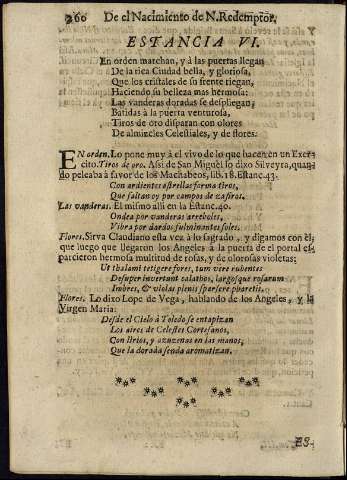 260 De el Nacimiento de N. Redemptor.
ESTANCIA VI.
En orden marchan, y à las puertas llegan
De la rica Ciudad bella, y gloriosa,
Que los cristales de su frente riegan,
Haciendo su belleza mas hermosa:
Las vanderas doradas se despliegan,
Batidas à la puerta venturosa,
Tiros de oro disparan con olores
De almizcles Celestiales, y de flores.
EN orden. Lo pone muy à el vivo de lo que hacen en un Exer-
cito. Tiros de oro. Assi de San Miguel lo dixo Silveyra, quan-
do peleaba à favor de los Machabeos, lib. 18. Estanc. 43.
Con ardientes estrellas forma tiros,
Que saltan oy por campos de zafiros.
Las vanderas. El mismo alli en la Estanc. 40.
Ondea por vanderas arreboles,
Vibra por dardos fulminantes soles.
Flores. Sirva Claudiano esta vez à lo sagrado, y digamos con èl,
que luego que llegaron los Angeles à la puerta de el portal es-
parcieron hermosa multitud de rosas, y de olorosas violetas:
Ut thalami tetigere fores, tum vere rubentes
Desuper invertunt calathos, largosque rosarum
Imbres, & violas plenis sparsere pharetris.
Flores. Lo dixo Lope de Vega, hablando de los Angeles, y la
Virgen Maria:
Desde el Cielo à Toledo se entapizan
Los aires de Celestes Cortesanos,
Con lirios, y azuzenas en las manos,
Que la dorada senda aromatizan.
ES-